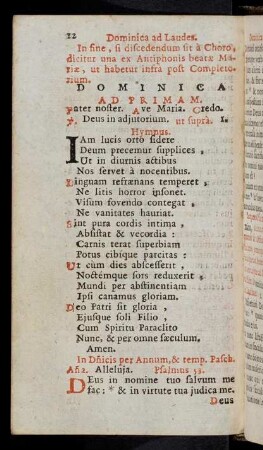 12 Dominica ad Laudes.
In fine, si discedendum sit à Choro,
dicitur una ex Antiphonis beatæ Ma-
riæ, ut habetur infra post Completo-
rium.
DOMINICA
AD PRIMAM.
Pater noster. Ave Maria. Credo.
℣. Deus in adjutorium. ut suprà. 1.
Hymnus.
IAm lucis orto sidere
Deum precemur supplices,
Ut in diurnis actibus
Nos servet à nocentibus.
Linguam refrænans temperet,
Ne litis horror insonet.
Visum fovendo contegat,
Ne vanitates hauriat.
Sint pura cordis intima,
Absistat & vecordia:
Carnis terat superbiam
Potus cibíque parcitas:
Ut cùm dies abscesserit,
Noctémque sors reduxerit,
Mundi per abstinentiam
Ipsi canamus gloriam.
Deo Patri sit gloria,
Ejusque soli Filio,
Cum Spiritu Paraclito
Nunc, & per omne sæculum.
Amen.
In Dñicis per Annum, & temp. Pasch.
Añâ. Alleluja. Psalmus 53.
DEus in nomine tuo salvum me
fac: * & in virtute tua judica me.
Deus